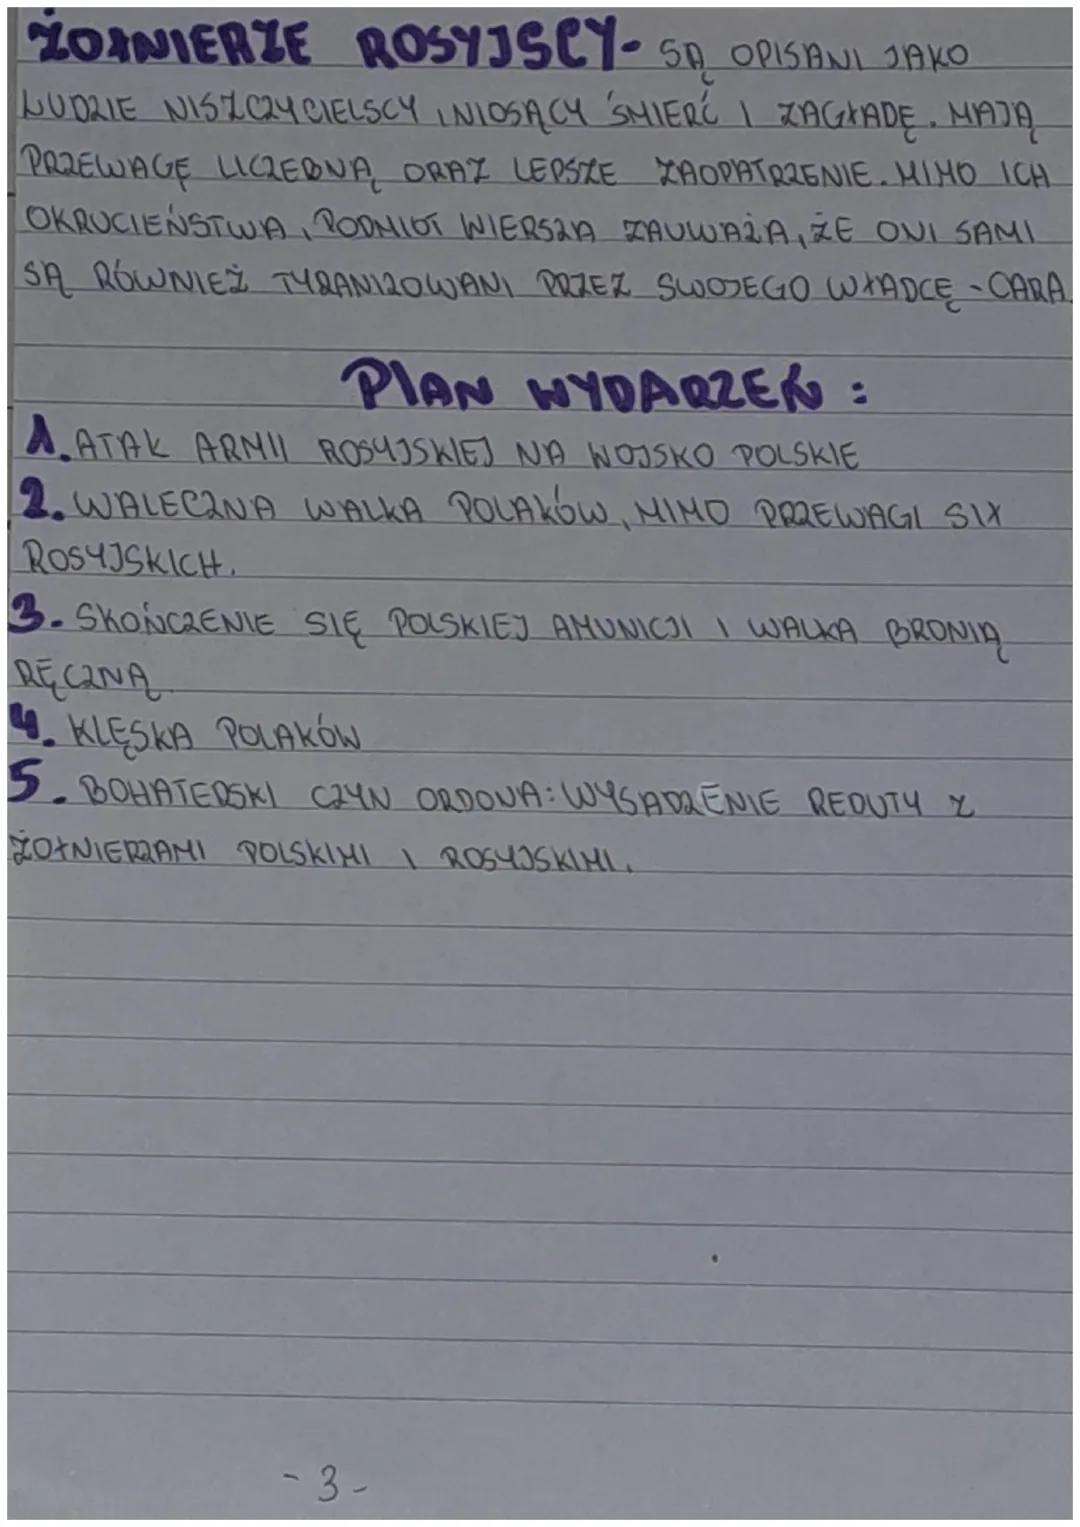 ŻOŁNIERZE ROSYJSCY- SĄ OPISANI JAKO
LUDZIE NISZCZYCIELSCY, NIOSĄCY ŚMIERĆ I ZAGŁADĘ. MAJĄ
PRZEWAGĘ LICZEBNĄ ORAZ LEPSZE ZAOPATRZENIE. MIMO ICH
OKRUCIEŃSTWA, PODMIOT WIERSZA ZAUWAŻA, ŻE ONI SAMI
SĄ RÓWNIEŻ TYRANIZOWANI PRZEZ SWOJEGO WŁADCĘ - CARA.
PLAN WYDARZEŃ:
1. ATAK ARMII ROSYJSKIEJ NA WOJSKO POLSKIE
2. WALECZNA WALKA POLAKÓW, MIMO PRZEWAGI SIŁ
ROSYJSKICH.
3. SKOŃCZENIE SIĘ POLSKIEJ AMUNICJI I WALKA BRONIĄ
RĘCZNĄ.
4. KLĘSKA POLAKÓW
5. BOHATERSKI CZYN ORDONA: WYSADZENIE REDUTY Z
ŻOŁNIERZAMI POLSKIMI I ROSYJSKIMI.
- 3 -